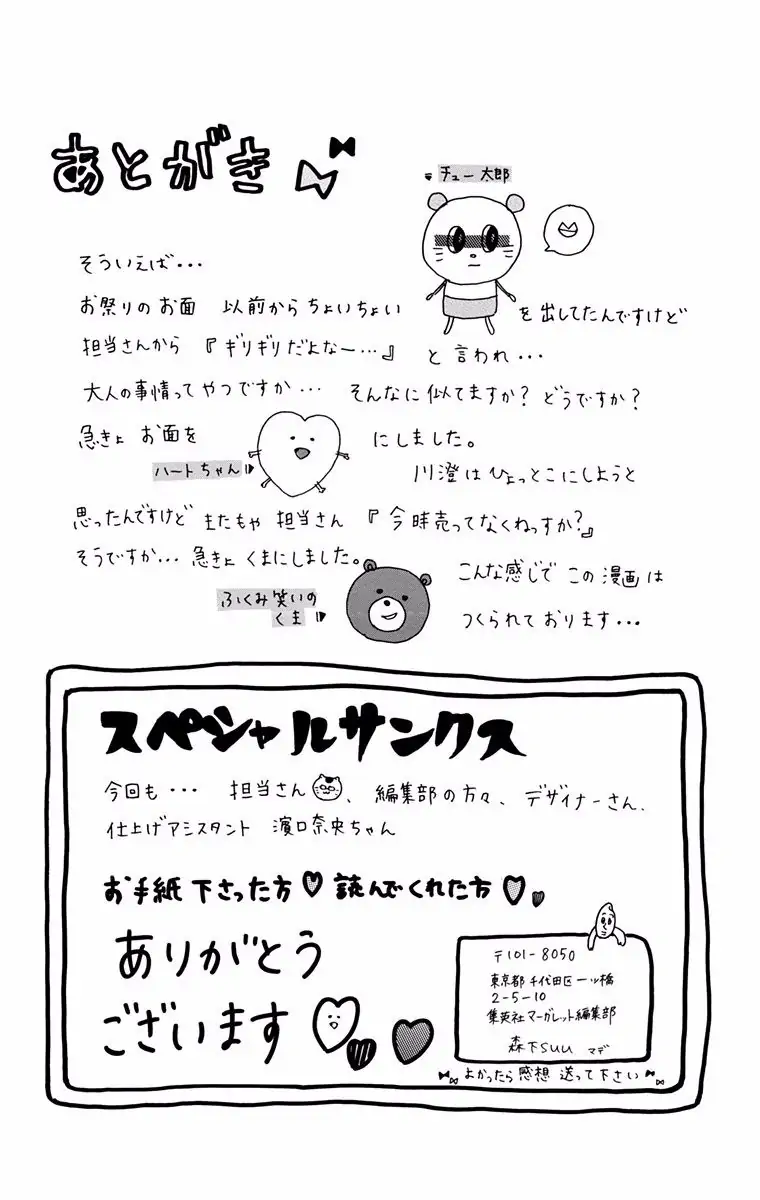 あとがき
チュー太郎
そういえば・・・
お祭りのお面 以前からちょいちょい を出してたんですけど
担当さんから『ギリギリだよなー・・・』と言われ・・・
大人の事情ってやつですか・・・ そんなに似てますか？どうですか？
急きょ お面を にしました。
ハートちゃん
川澄はひょっとこにしようと
思ったんですけど またもや 担当さん『今時売ってなくねっすか？』
そうですか・・・急きょ くまにしました。
ふくみ笑いの
くま
こんな感じで この漫画は
つくられております・・・
スペシャルサンクス
今回も・・・ 担当さん、編集部の方々、デザイナーさん、
仕上げアシスタント 濱口奈央ちゃん
お手紙下さった方♡読んでくれた方♡
ありがとう
ございます
〒101-8050
東京都千代田区一ツ橋
2-5-10
集英社マーガレット編集部
森下suu マデ
よかったら感想送って下さい